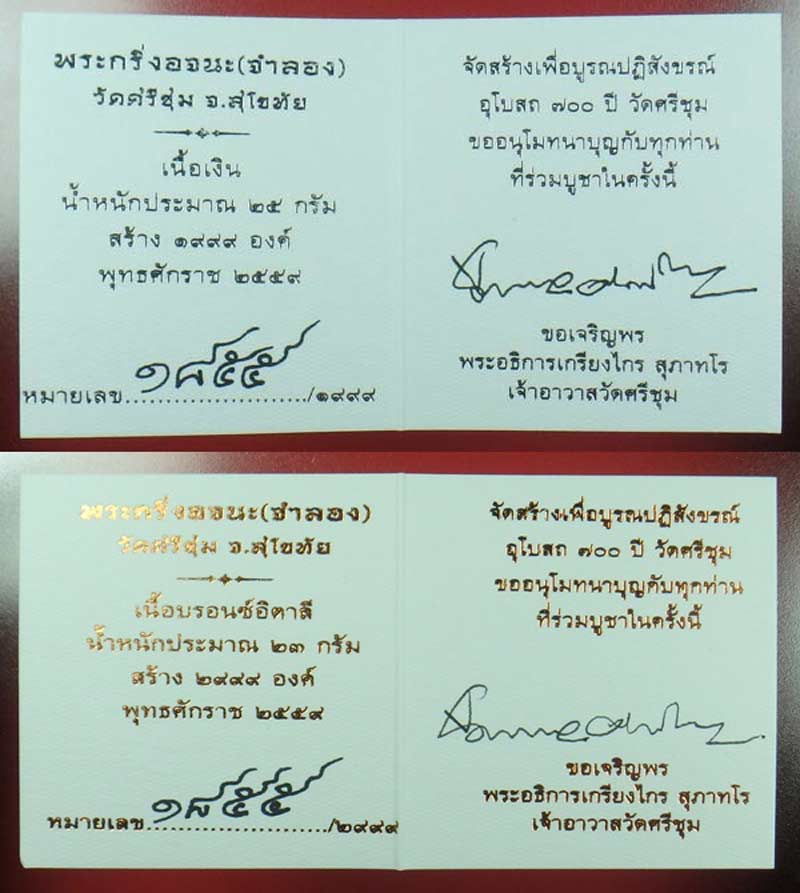 พระกริ่งอจนะ(จำลอง)
วัดศรีชุ่ม จ.สุโขทัย
เนื้อเงิน
น้ำหนักประมาณ ๒๕ กรัม
สร้าง ๑๙๙๙ องค์
พุทธศักราช ๒๕๕๙
๑๘๕๕
หมายเลข......................./๑๙๙๙
จัดสร้างเพื่อบูรณปฏิสังขรณ์
อุโบสถ ๗๐๐ ปี วัดศรีชุม
ขออนุโมทนาบุญกับทุกท่าน
ที่ร่วมบูชาในครั้งนี้
ขอเจริญพร
พระอธิการเกรียงไกร สุภาทโร
เจ้าอาวาสวัดศรีชุม
พระกริ่งอจนะ(จำลอง)
วัดศรีชุ่ม จ.สุโขทัย
เนื้อบรอนซ์อิตาลี
น้ำหนักประมาณ ๒๓ กรัม
สร้าง ๒๙๙๙ องค์
พุทธศักราช ๒๕๕๙
๑๘๕๕
หมายเลข......................./๒๙๙๙
จัดสร้างเพื่อบูรณปฏิสังขรณ์
อุโบสถ ๗๐๐ ปี วัดศรีชุม
ขออนุโมทนาบุญกับทุกท่าน
ที่ร่วมบูชาในครั้งนี้
ขอเจริญพร
พระอธิการเกรียงไกร สุภาทโร
เจ้าอาวาสวัดศรีชุม